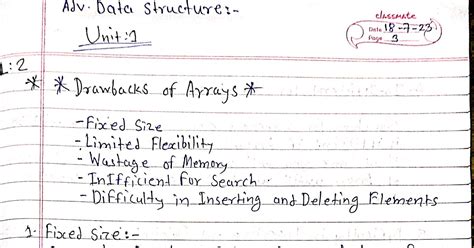 Adv. Data Structure:-
classmate
Date 18-7-23
Page 3
Unit:1
L:2
* * Drawbacks of Arrays *
- Fixed Size
- Limited Flexibility
- Wastage of Memory
- InIfficient For Search
- Difficulty in Inserting and Deleting Elements
1. Fixed Size:-